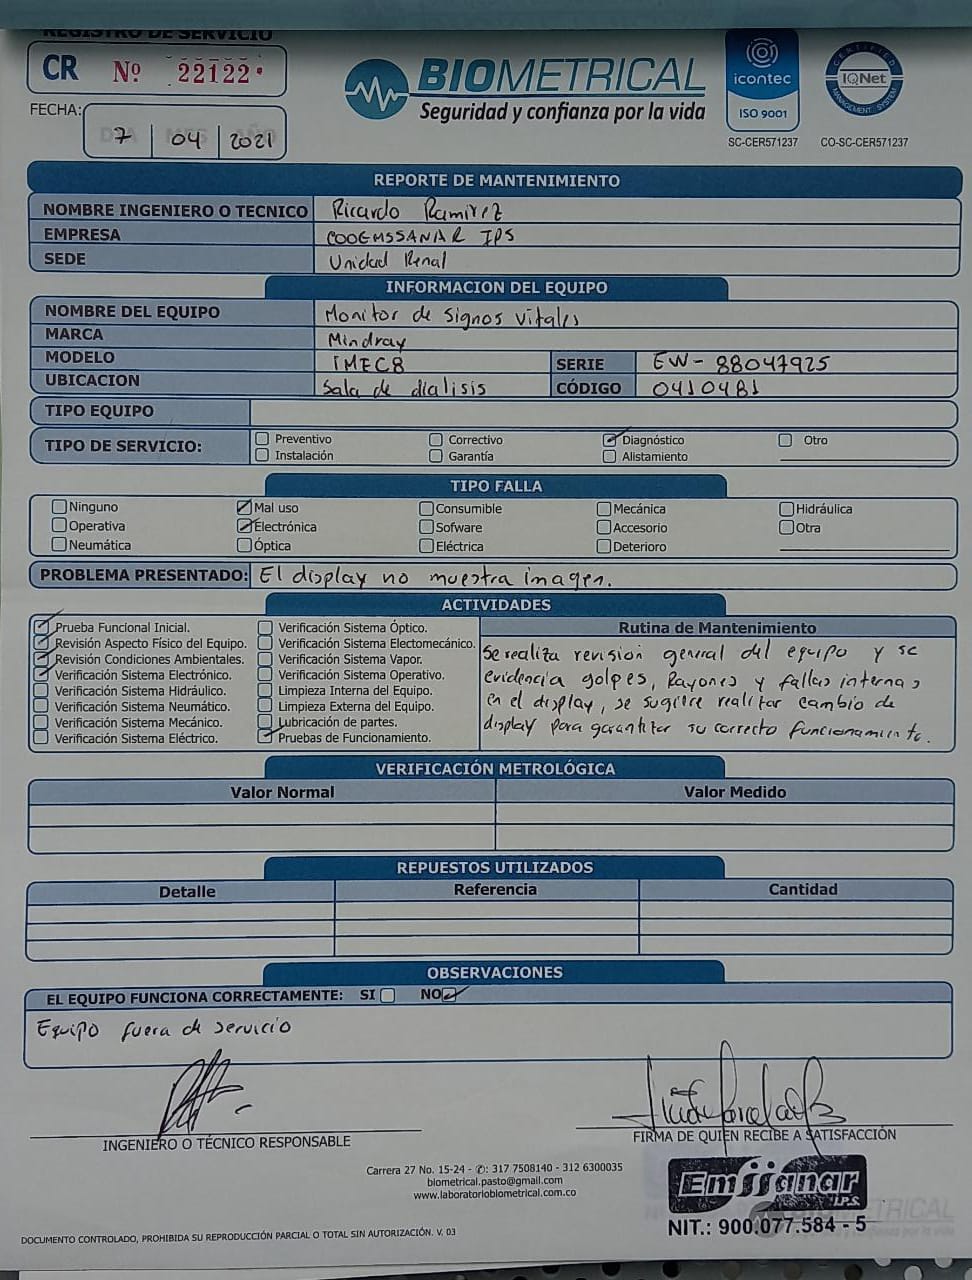 REGISTRO DE SERVICIO
CR Nº 22122
BIOMETRICAL
Seguridad y confianza por la vida
icontec
ISO 9001
SC-CER571237
CERTIFIED
IQNet
MANAGEMENT SYSTEM
CO-SC-CER571237
FECHA: 7 04 2021
REPORTE DE MANTENIMIENTO
NOMBRE INGENIERO O TECNICO Ricardo Ramirez
EMPRESA COOEMSSANAR IPS
SEDE Unidad Renal
INFORMACION DEL EQUIPO
NOMBRE DEL EQUIPO Monitor de signos vitales
MARCA Mindray
MODELO IMEC8 SERIE EW-88047925
UBICACION Sala de dialisis CÓDIGO 0410481
TIPO EQUIPO
TIPO DE SERVICIO: Preventivo Correctivo Diagnóstico Otro
Instalación Garantía Alistamiento
TIPO FALLA
Ninguno Mal uso Consumible Mecánica Hidráulica
Operativa Electrónica Sofware Accesorio Otra
Neumática Óptica Eléctrica Deterioro
PROBLEMA PRESENTADO: El display no muestra imagen.
ACTIVIDADES
Prueba Funcional Inicial.
Revisión Aspecto Físico del Equipo.
Revisión Condiciones Ambientales.
Verificación Sistema Electrónico.
Verificación Sistema Hidráulico.
Verificación Sistema Neumático.
Verificación Sistema Mecánico.
Verificación Sistema Eléctrico.
Verificación Sistema Óptico.
Verificación Sistema Electomecánico.
Verificación Sistema Vapor.
Verificación Sistema Operativo.
Limpieza Interna del Equipo.
Limpieza Externa del Equipo.
Lubricación de partes.
Pruebas de Funcionamiento.
Rutina de Mantenimiento
Se realiza revision general del equipo y se
evidencia golpes, Rayones y fallas internas
en el display, se sugiere realizar cambio de
display para garantizar su correcto funcionamiento.
VERIFICACIÓN METROLÓGICA
Valor Normal Valor Medido
REPUESTOS UTILIZADOS
Detalle Referencia Cantidad
OBSERVACIONES
EL EQUIPO FUNCIONA CORRECTAMENTE: SI NO
Equipo fuera de servicio
INGENIERO O TÉCNICO RESPONSABLE
FIRMA DE QUIEN RECIBE A SATISFACCIÓN
Carrera 27 No. 15-24 - ✆: 317 7508140 - 312 6300035
biometrical.pasto@gmail.com
www.laboratoriobiometrical.com.co
Emssanar
I.P.S.
NIT.: 900.077.584 - 5
DOCUMENTO CONTROLADO, PROHIBIDA SU REPRODUCCIÓN PARCIAL O TOTAL SIN AUTORIZACIÓN. V. 03